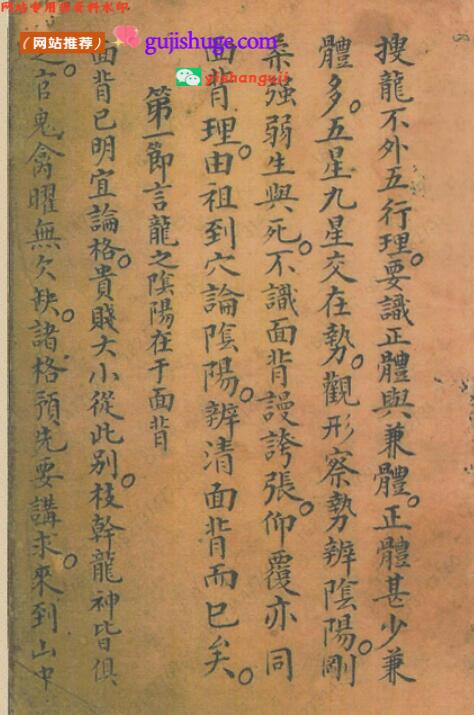 （网站推荐） gujishuge.com
yishanguji
搜龍不外五行理。要識正體與兼體。正體甚少兼
體多。五星九星交在勢。觀形察勢辨陰陽。剛
柔強弱生與死。不識面背謾誇張。仰覆亦同
面背理。由祖到穴論陰陽。辨清面背而已矣。
第一節言龍之陰陽在于面背
面背已明宜論格。貴賤大小從此別。枝幹龍神皆俱
之。官鬼禽曜無欠缺。諸格預先要講求。來到山中